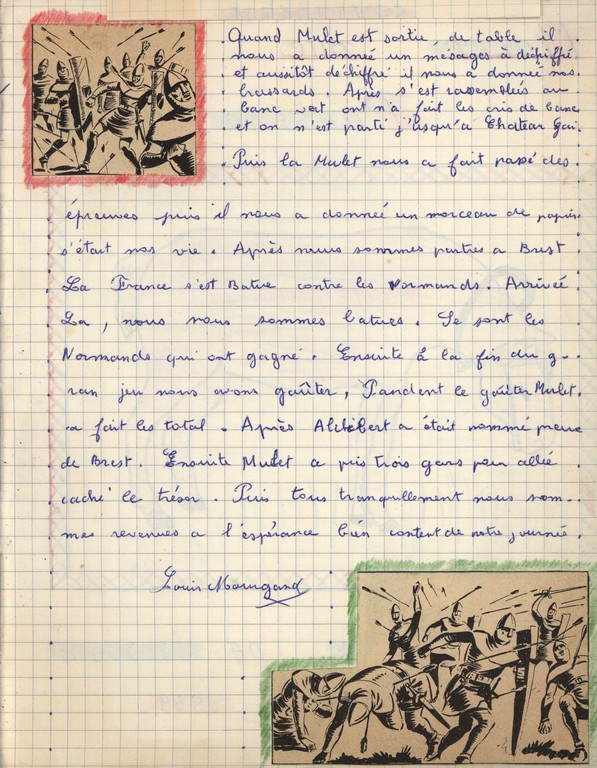 Quand Mulet est sortie de table il
nous a donnée un mésages à déchiffré
et aussitôt déchiffré il nous a donnée nos
brassards. Après s'est rassembleis au
banc vert ont n'a fait les cris de banc
et on n'est parti j'usqu'a Chateau Gai.
Puis la Mulet nous a fait passé des
épreuves puis il nous a donnée un morceau de papier
s'était nos vie. Après nous sommes partres a Brest
La France s'est Batue contre les Normands. Arriveé
La, nous nous sommes batues. Se sont les
Normands qui ont gagné. Ensuite à la fin du g-
ran jeu nous avons goûter, Pandent le goûter Mulet.
a fait les total. Après Alibert a était nommé preux
de Brest. Ensuite Mulet a pris trois gars pour allée
caché le trésor. Puis tous tranquillement nous som-
mes revenues a l'espérance bien content de notre journée.
Louis